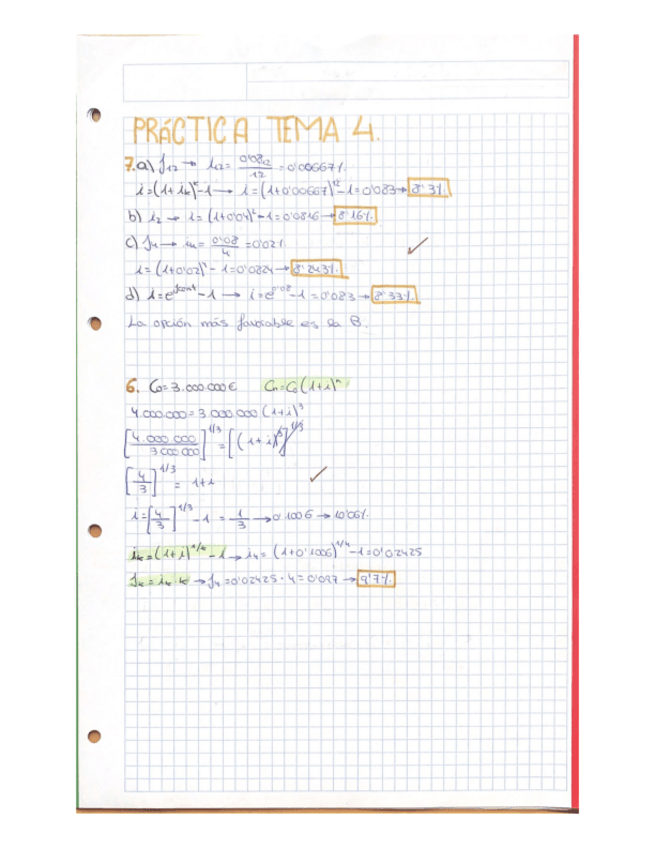 PRÁCTICA TEMA 4.
7.a) J12 → i12 = 0'08/12 = 0'00667%
i=(1+ik)^k-1 → i=(1+0'00667)^12-1=0'083→ 8'3%
b) i2 → i=(1+0'04)²-1=0'0816→ 8'16%
c) J4 → i4= 0'08/4 =0'02%
i=(1+0'02)⁴-1=0'0824→ 8'243%
d) i=e^Jcont-1 → i=e^0'08-1=0'083→ 8'33%
La opción más favorable es la B.
6. C0=3.000.000€ Cn=C0(1+i)^n
4.000.000=3.000.000(1+i)^3
[4.000.000/3000000]^1/3=[(1+i)^3]^1/3
[4/3]^1/3 = 1+i
i=[4/3]^1/3-1=1/3→0'1006→10'06%
ik=(1+i)^1/k-1→i4=(1+0'1006)^1/4-1=0'02425
Jk=ik·k→J4=0'02425·4=0'097→ 9'7%